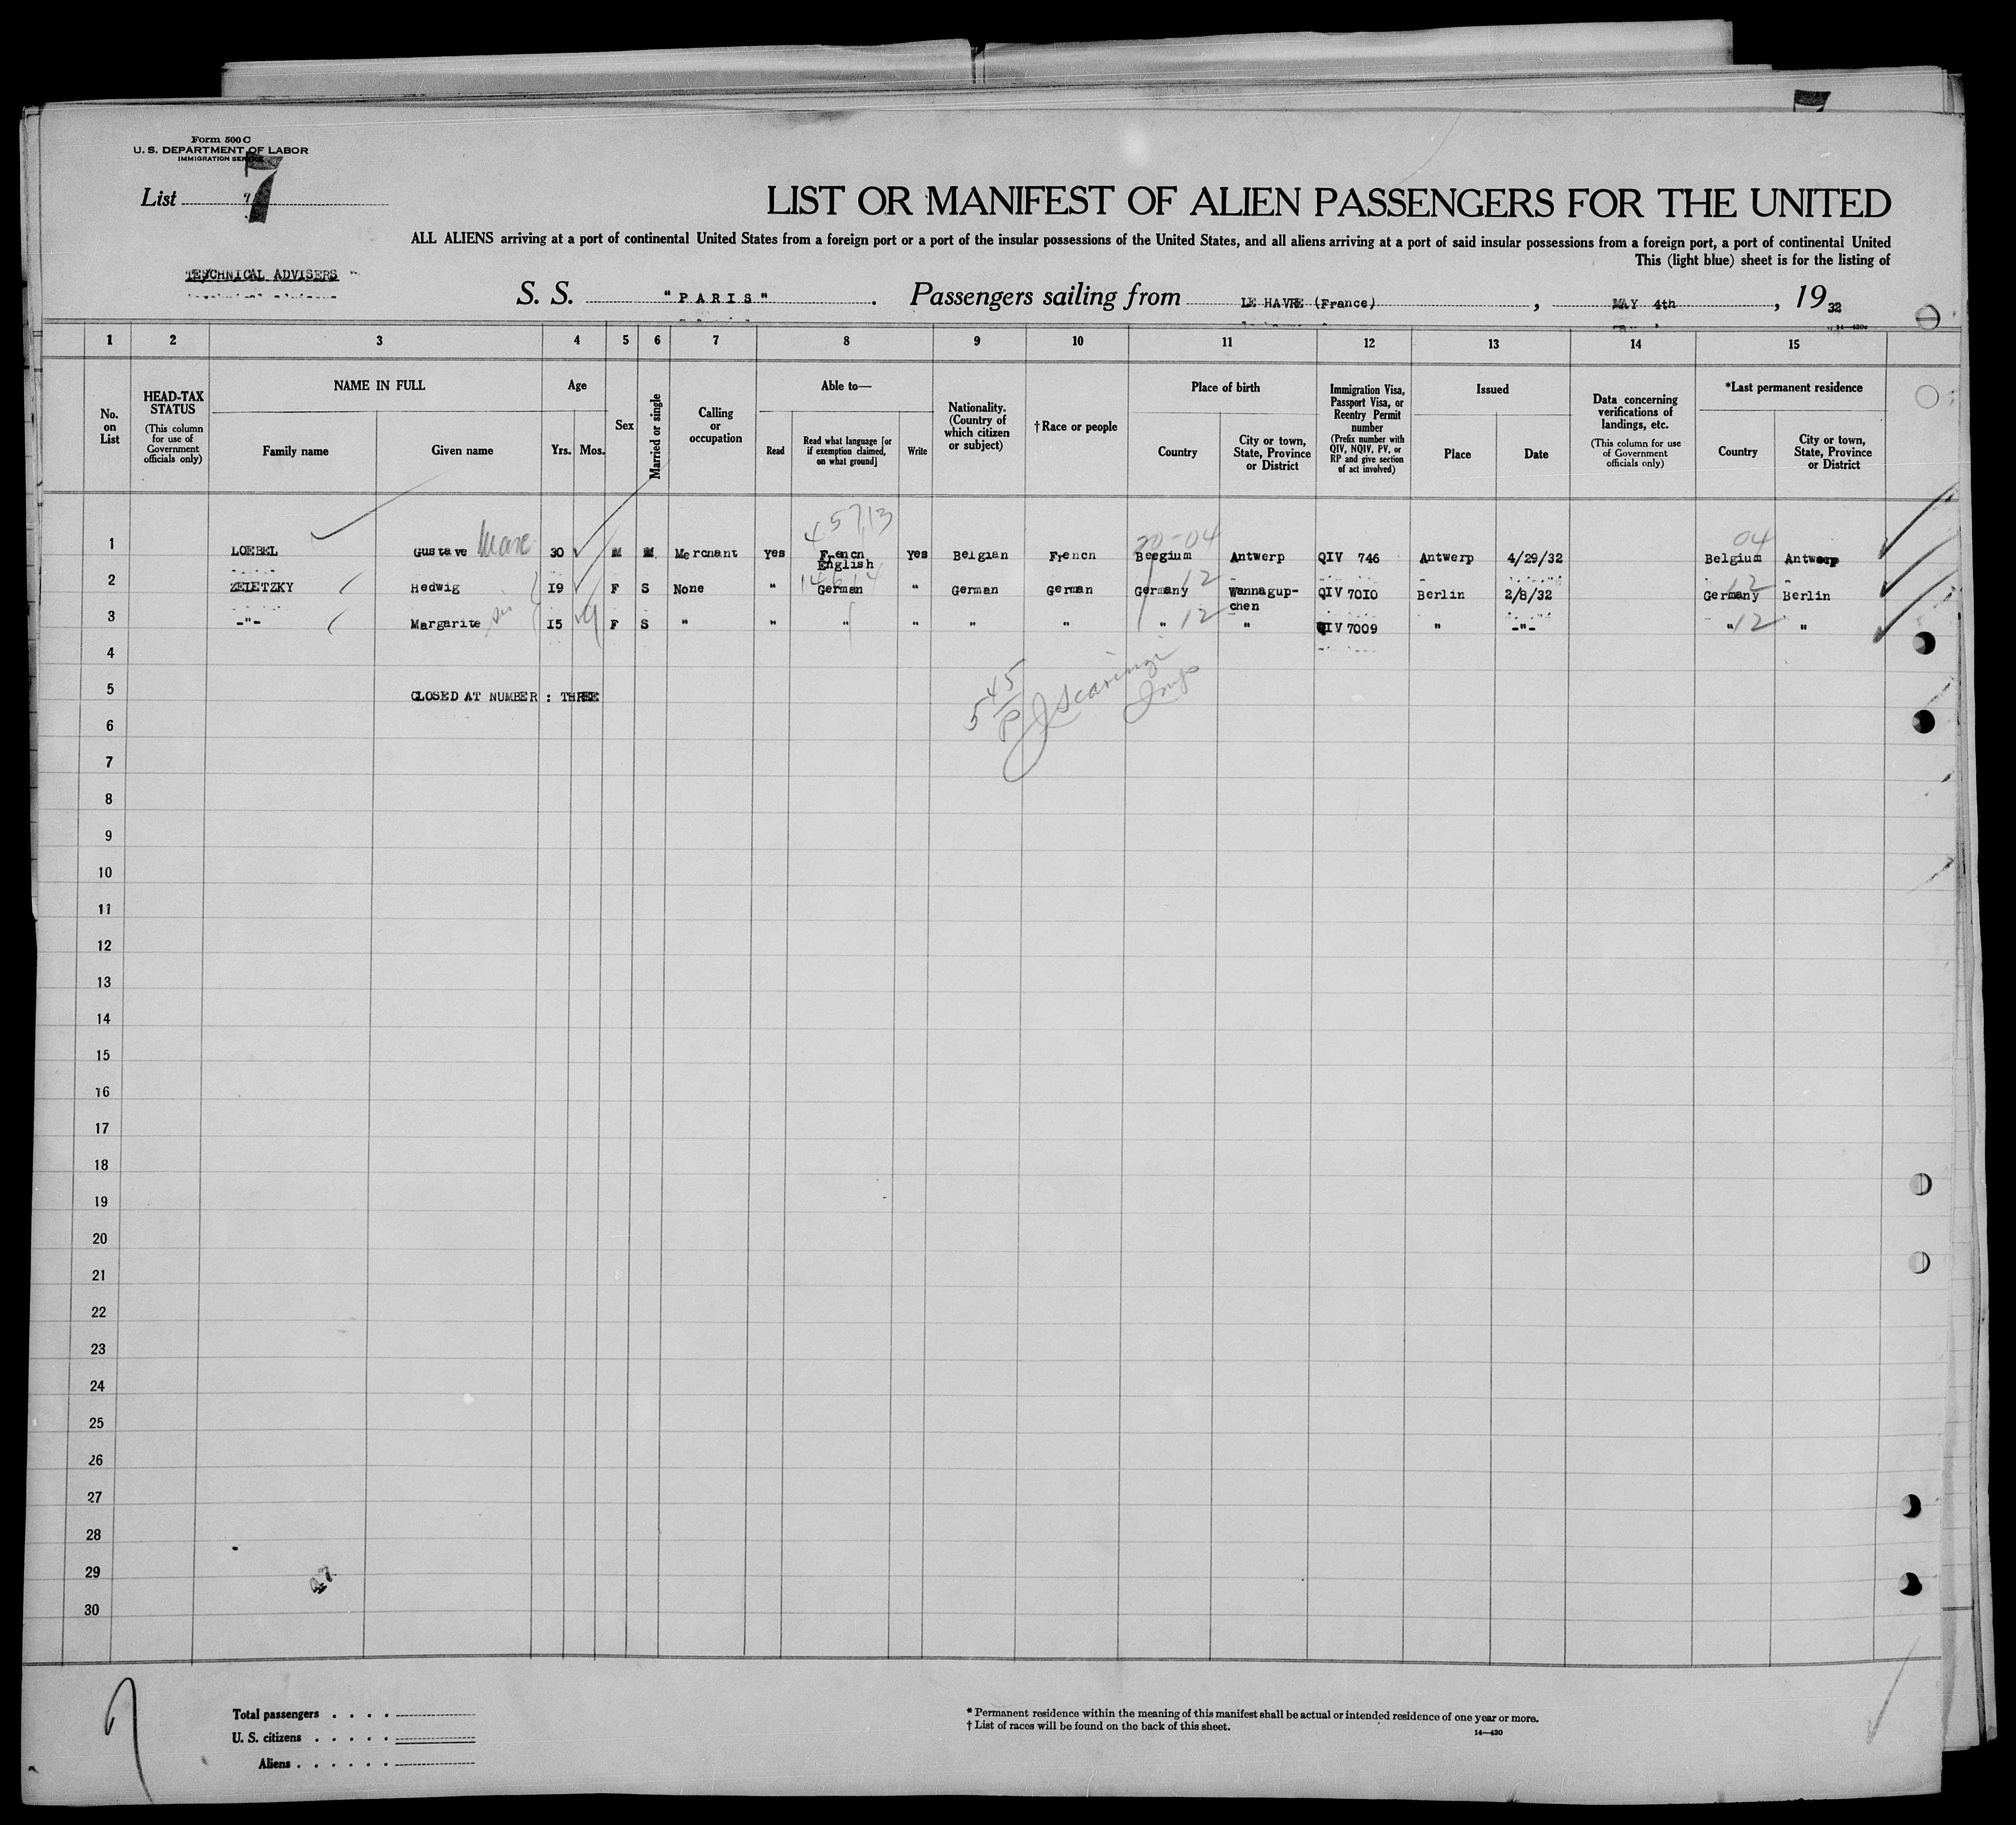 Form 500 C
U. S. DEPARTMENT OF LABOR
IMMIGRATION SERVICE
List 7
LIST OR MANIFEST OF ALIEN PASSENGERS FOR THE UNITED
ALL ALIENS arriving at a port of continental United States from a foreign port or a port of the insular possessions of the United States, and all aliens arriving at a port of said insular possessions from a foreign port, a port of continental United
This (light blue) sheet is for the listing of
TECHNICAL ADVISERS
S. S. "PARIS". Passengers sailing from LE HAVRE (France), MAY 4th, 1932
14—430a
1 2 3 4 5 6 7 8 9 10 11 12 13 14 15
No. on List
HEAD-TAX STATUS (This column for use of Government officials only)
NAME IN FULL
Family name
Given name
Age
Yrs. Mos.
Sex
Married or single
Calling or occupation
Able to—
Read
Read what language [or if exemption claimed, on what ground]
Write
Nationality. (Country of which citizen or subject)
†Race or people
Place of birth
Country
City or town, State, Province or District
Immigration Visa, Passport Visa, or Reentry Permit number (Prefix number with QIV, NQIV, PV, or RP and give section of act involved)
Issued
Place
Date
Data concerning verifications of landings, etc. (This column for use of Government officials only)
*Last permanent residence
Country
City or town, State, Province or District
4 5713 20-04 04
1 LOEBEL Gustave 30 M M Merchant Yes French English Yes Belgian French Beegium Antwerp QIV 746 Antwerp 4/29/32 Belgium Antwerp
2 ZEIETZKY Hedwig I9 F S None " German " German German Germany 12 Wannagup-chen QIV 70I0 Berlin 2/8/32 Germany 12 Berlin
3 -"- Margarite sis I5 F S " " " " " " " 12 " QIV 7009 " -"- " 12 "
4
5 CLOSED AT NUMBER : THREE
545
6
7
8
9
10
11
12
13
14
15
16
17
18
19
20
21
22
23
24
25
26
27
28
29
30
Total passengers . . . .
U. S. citizens . . . . .
Aliens . . . . . .
* Permanent residence within the meaning of this manifest shall be actual or intended residence of one year or more.
† List of races will be found on the back of this sheet.
14—430